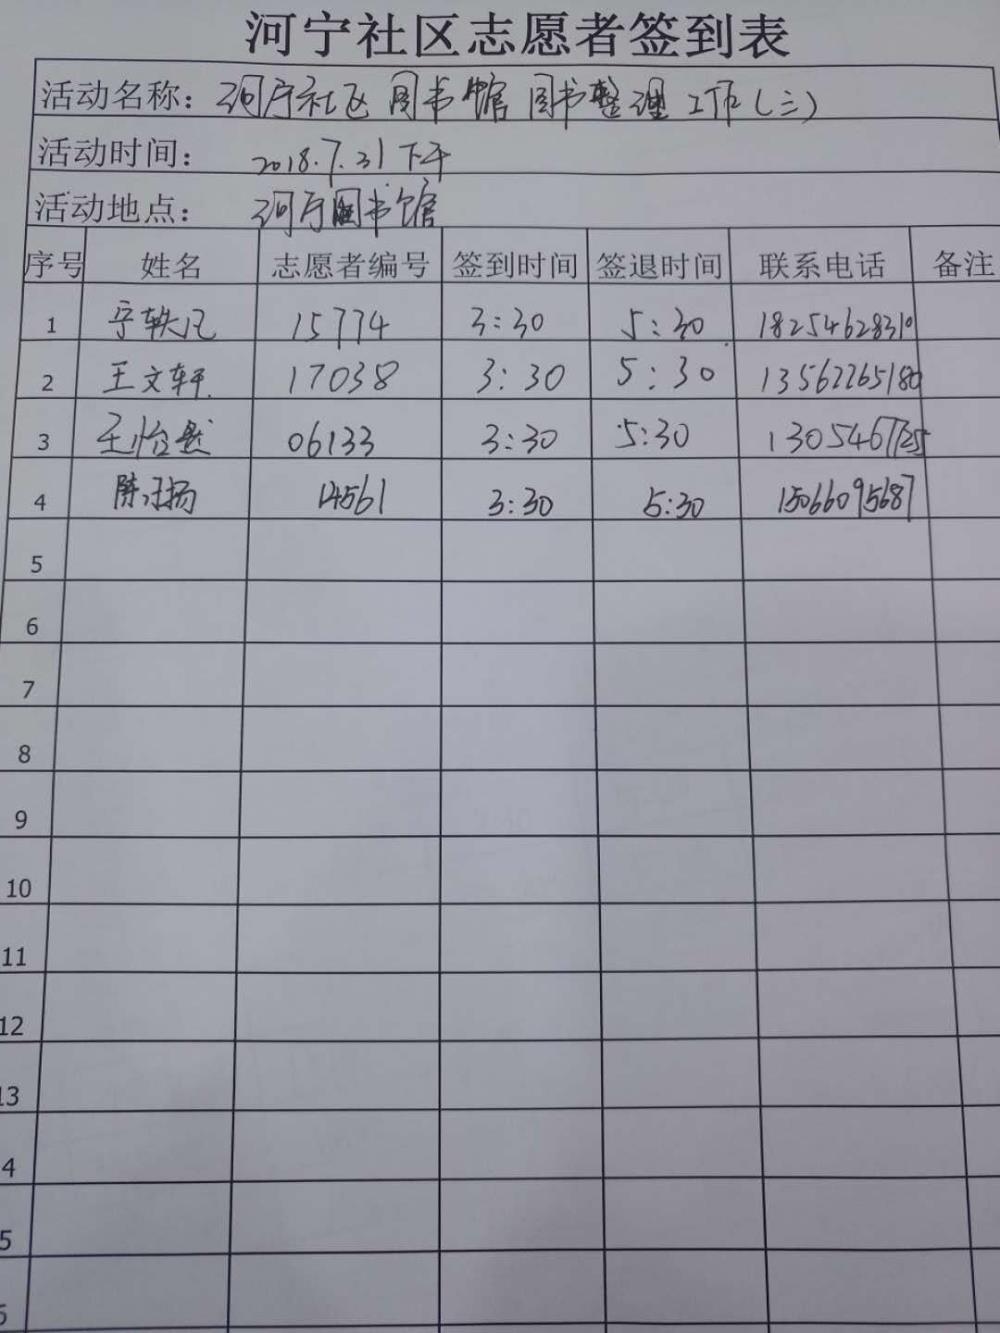 河宁社区志愿者签到表
活动名称：河宁社区图书馆图书整理工作(三)
活动时间：2018.7.31下午
活动地点：河宁图书馆
序号 姓名 志愿者编号 签到时间 签退时间 联系电话 备注
1 15774 3:30 5:30 18254628310
2 王文轩 17038 3:30 5:30 13562265180
3 王怡然 06133 3:30 5:30
4 14561 3:30 5:30 15066095687
5
6
7
8
9
10
11
12
13
4
5
6